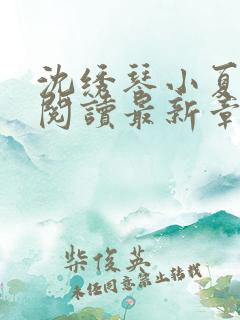 沈绣琴小夏
閱讀最新章
柴俊英
未经同意禁止转载